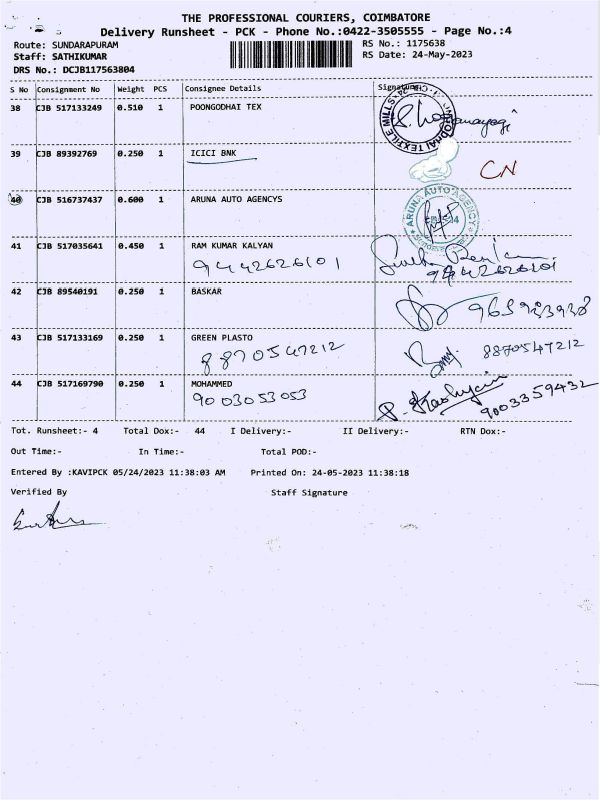 THE PROFESSIONAL COURIERS, COIMBATORE
Delivery Runsheet - PCK - Phone No.:0422-3505555 - Page No.:4
Route: SUNDARAPURAM RS No.: 1175638
Staff: SATHIKUMAR RS Date: 24-May-2023
DRS No.: DCJB117563804
S No Consignment No Weight PCS Consignee Details Signature
38 CJB 517133249 0.510 1 POONGODHAI TEX
39 CJB 89392769 0.250 1 ICICI BNK CN
40 CJB 516737437 0.600 1 ARUNA AUTO AGENCYS
ARUNA AUTO AGENCY
41 CJB 517035641 0.450 1 RAM KUMAR KALYAN
9442626101 9442626101
42 CJB 89540191 0.250 1 BASKAR
43 CJB 517133169 0.250 1 GREEN PLASTO
8870547212 8870547212
44 CJB 517169790 0.250 1 MOHAMMED
9003053053 9003359432
Tot. Runsheet:- 4 Total Dox:- 44 I Delivery:- II Delivery:- RTN Dox:-
Out Time:- In Time:- Total POD:-
Entered By :KAVIPCK 05/24/2023 11:38:03 AM Printed On: 24-05-2023 11:38:18
Verified By Staff Signature